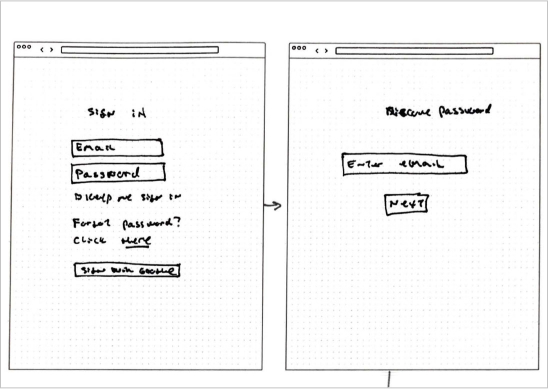 SIGN IN
Email
Password
keep me sign in
Forgot password?
Click here
Sign with Google
Password
Enter email
Next